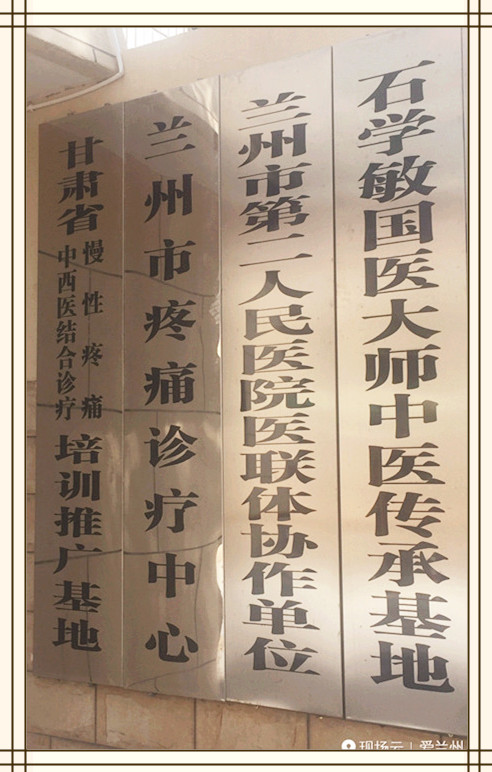 石学敏国医大师中医传承基地
兰州市第二人民医院医联体协作单位
兰州市疼痛诊疗中心
甘肃省
慢性疼痛
中西医结合诊疗
培训推广基地
现场云 | 爱兰州